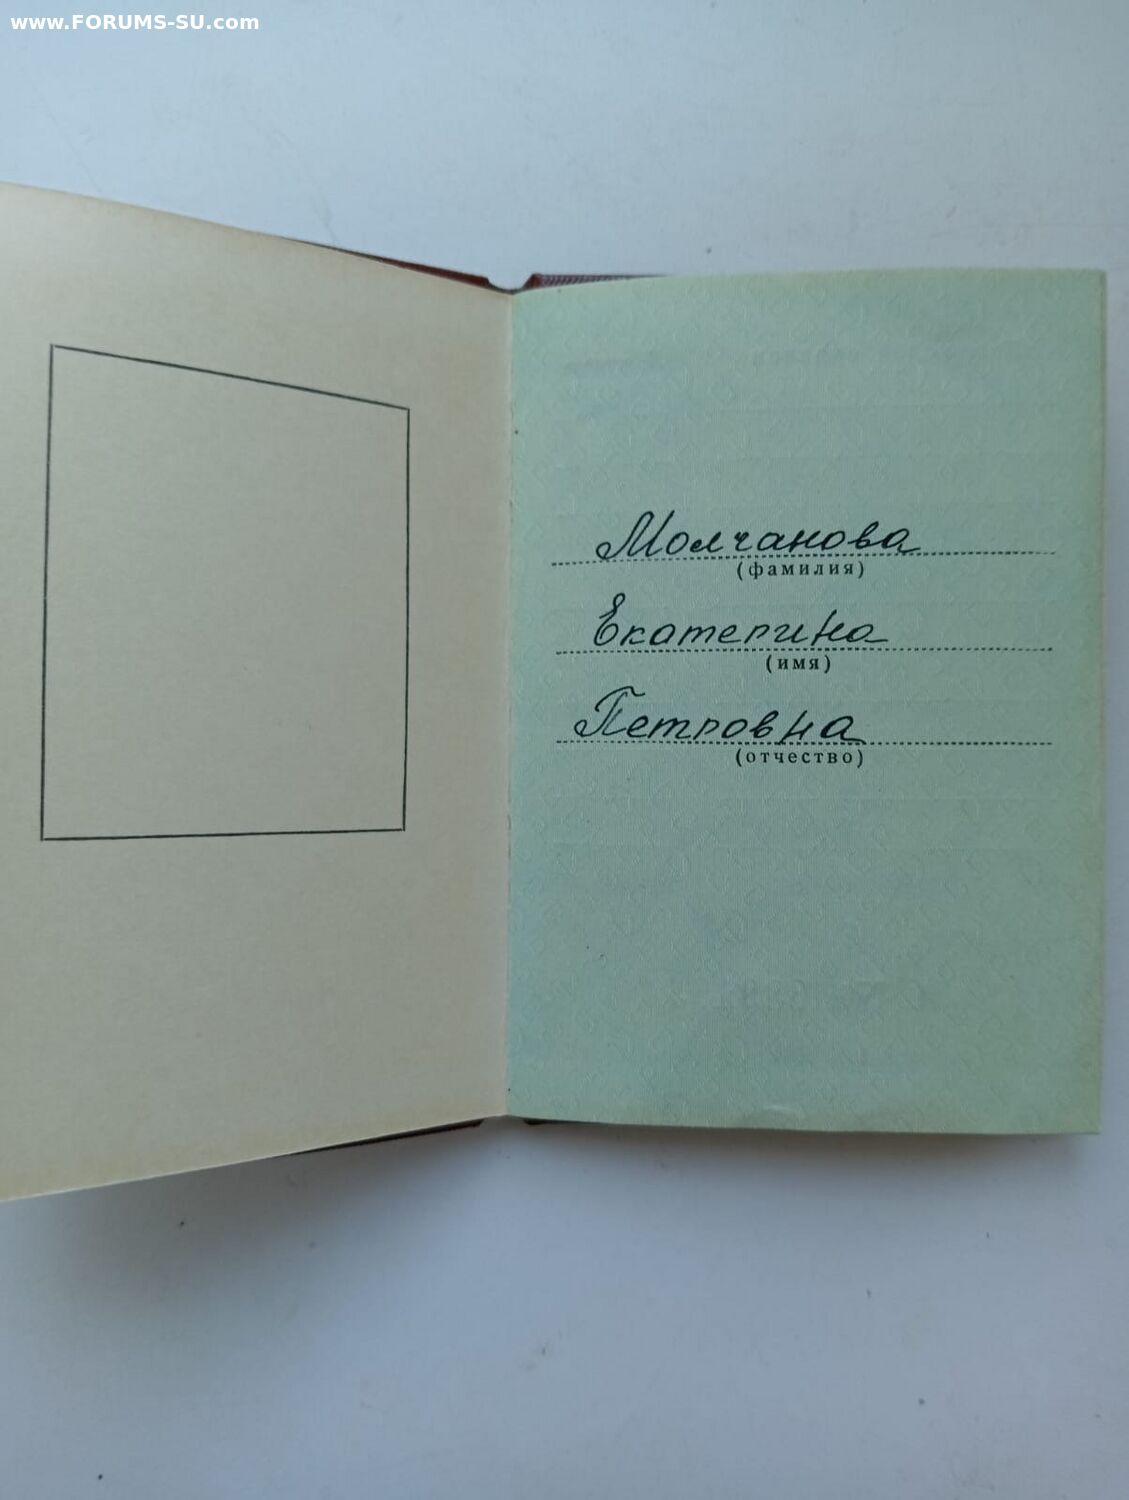 www.FORUMS-SU.com
Молчанова
(фамилия)
Екатерина
(имя)
Петровна
(отчество)